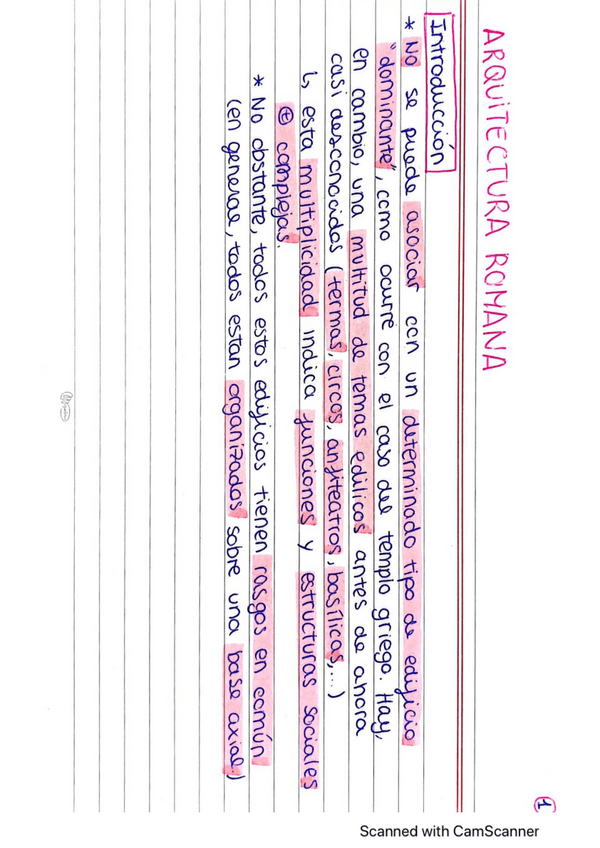 1
ARQUITECTURA ROMANA
Introducción
* No se puede asociar con un determinado tipo de edificio
"dominante", como ocurre con el caso del templo griego. Hay,
en cambio, una multitud de temas edilicos antes de ahora
casi desconocidos (termas, circos, anfiteatros, basílicas,...)
↳ esta multiplicidad indica funciones y estructuras sociales
⊕ complejas.
* No obstante, todos estos edificios tienen rasgos en común
(en general, todos estan organizados sobre una base axial.)
Scanned with CamScanner